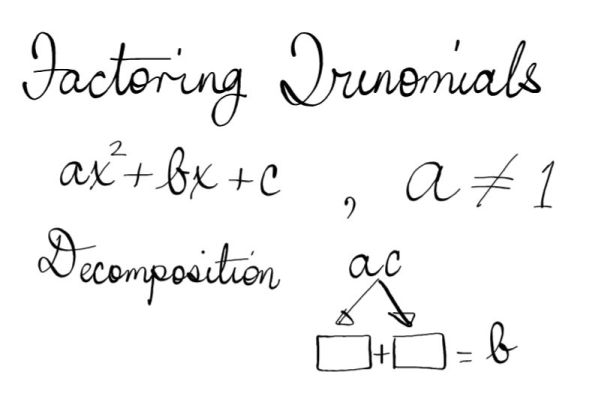 Factoring Trinomials
ax²+bx+c , a≠1
Decomposition ac
□+□=b